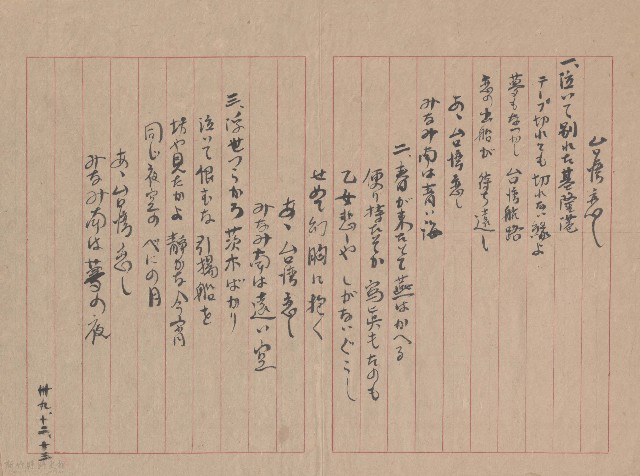 台湾恋し
一、泣いて別れた基隆港
テープ切れても切れない縁よ
夢もなつかし台湾航路
恋の出船が待ち遠し
あゝ台湾恋し
みなみ南は青い海
二、春が来たとて燕はかへる
便り持たぬか 寫眞もたのも
乙女悲しや しがない
せめて幻胸に抱く
あゝ台湾恋し
みなみ南は遠い空
三、浮世つらかろ 茨木ばかり
泣いて恨むな 引揚船を
坊や見たかよ 静かな今宵
同じ夜空のべにの月
あゝ台湾恋し
みなみ南は夢の夜
卅九、十二、廿三